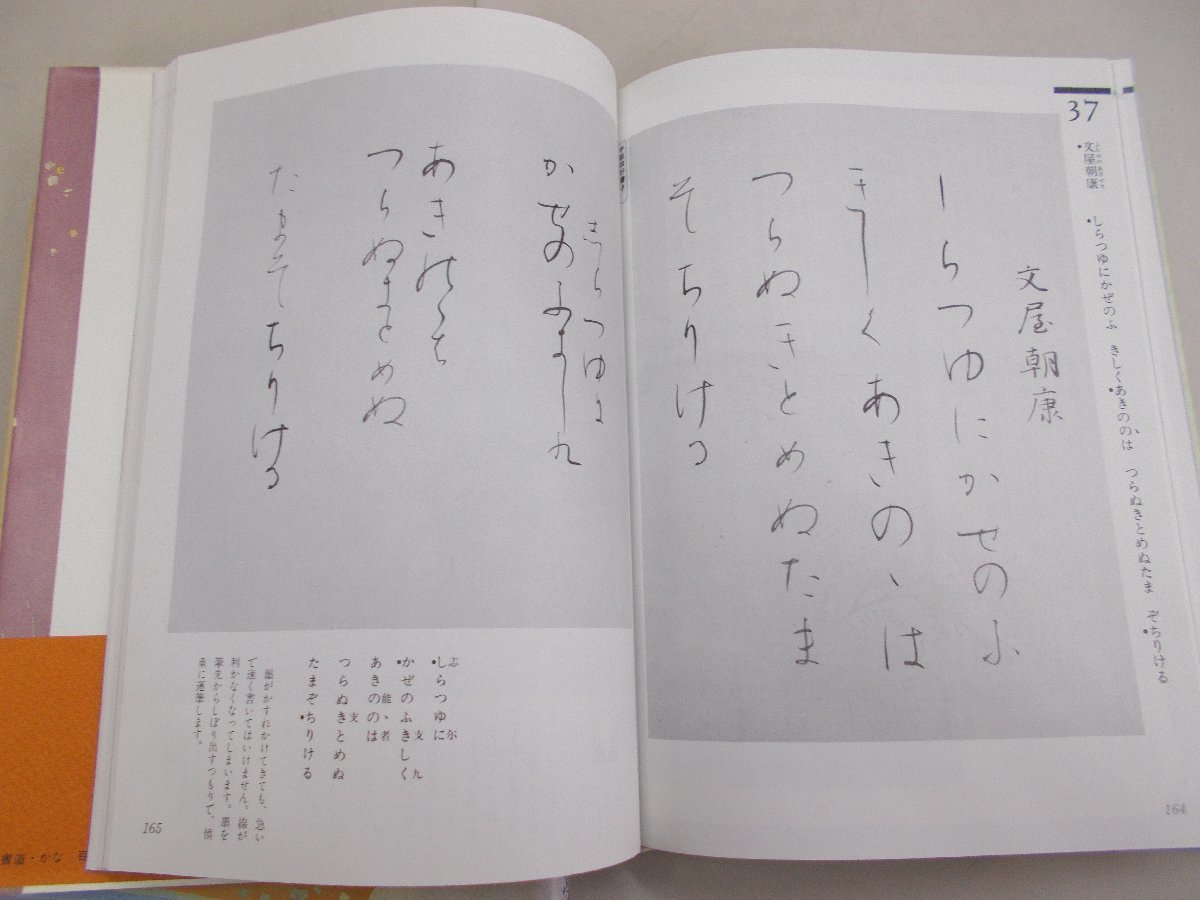 37
文屋朝康
しらつゆにかぜのふ きしくあきのゝは つらぬきとめぬたま ぞちりける
文屋朝康
しらつゆにかせのふ
きしくあきのゝは
つらぬきとめぬたま
そちりける
164
志らつゆ尓
かせのふ支し九
あき能ゝ者
つらぬ支とめぬ
たまそちりける
志 尓
しらつゆに
支 九
かぜのふきしく
能ゝ者
あきののは
支
つらぬきとめぬ
たまぞちりける
墨がかすれかけてきても、急い
で速く書いてはいけません。線が
利かなくなってしまいます。墨を
筆先からしぼり出すつもりで、慎
重に運筆します。
165
書道・かな